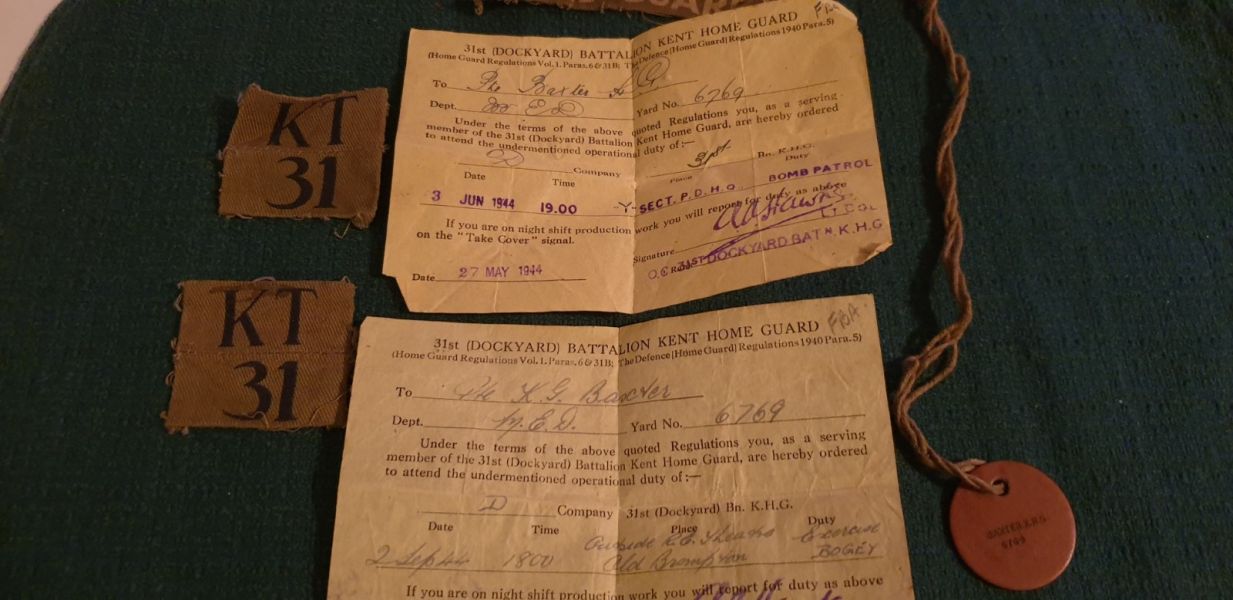 KT
31
KT
31
31st (DOCKYARD) BATTALION KENT HOME GUARD FBA
(Home Guard Regulations Vol. 1. Paras. 6 & 31B; The Defence (Home Guard) Regulations 1940 Para. 5)
To Pte Baxter
Dept. Yard No. 6769
Under the terms of the above quoted Regulations you, as a serving
member of the 31st (Dockyard) Battalion Kent Home Guard, are hereby ordered
to attend the undermentioned operational duty of:—
D Company 31st Bn. K.H.G.
Date Time Place Duty
3 JUN 1944 19.00 SECT. P.D.H.Q. BOMB PATROL
If you are on night shift production work you will report for duty as above
on the "Take Cover" signal.
Signature
LT. COL
Date 27 MAY 1944 O.C. 31ST DOCKYARD BATN. K.H.G
31st (DOCKYARD) BATTALION KENT HOME GUARD FBA
(Home Guard Regulations Vol. 1. Paras. 6 & 31B; The Defence (Home Guard) Regulations 1940 Para. 5)
To Pte K. G. Baxter
Dept. M.E.D. Yard No. 6769
Under the terms of the above quoted Regulations you, as a serving
member of the 31st (Dockyard) Battalion Kent Home Guard, are hereby ordered
to attend the undermentioned operational duty of:—
D Company 31st (Dockyard) Bn. K.H.G.
Date Time Place Duty
2 Sep 44 1800 Outside R.E. Old Brompton Exercise BOGEY
If you are on night shift production work you will report for duty as above